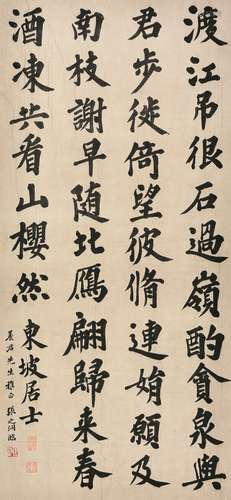 渡江吊很石過嶺酌貪泉與
君步徙倚望彼脩連娟願及
南枝謝早随北鴈翩歸来春
酒凍共看山櫻然
東坡居士
先生雅正 張之洞臨